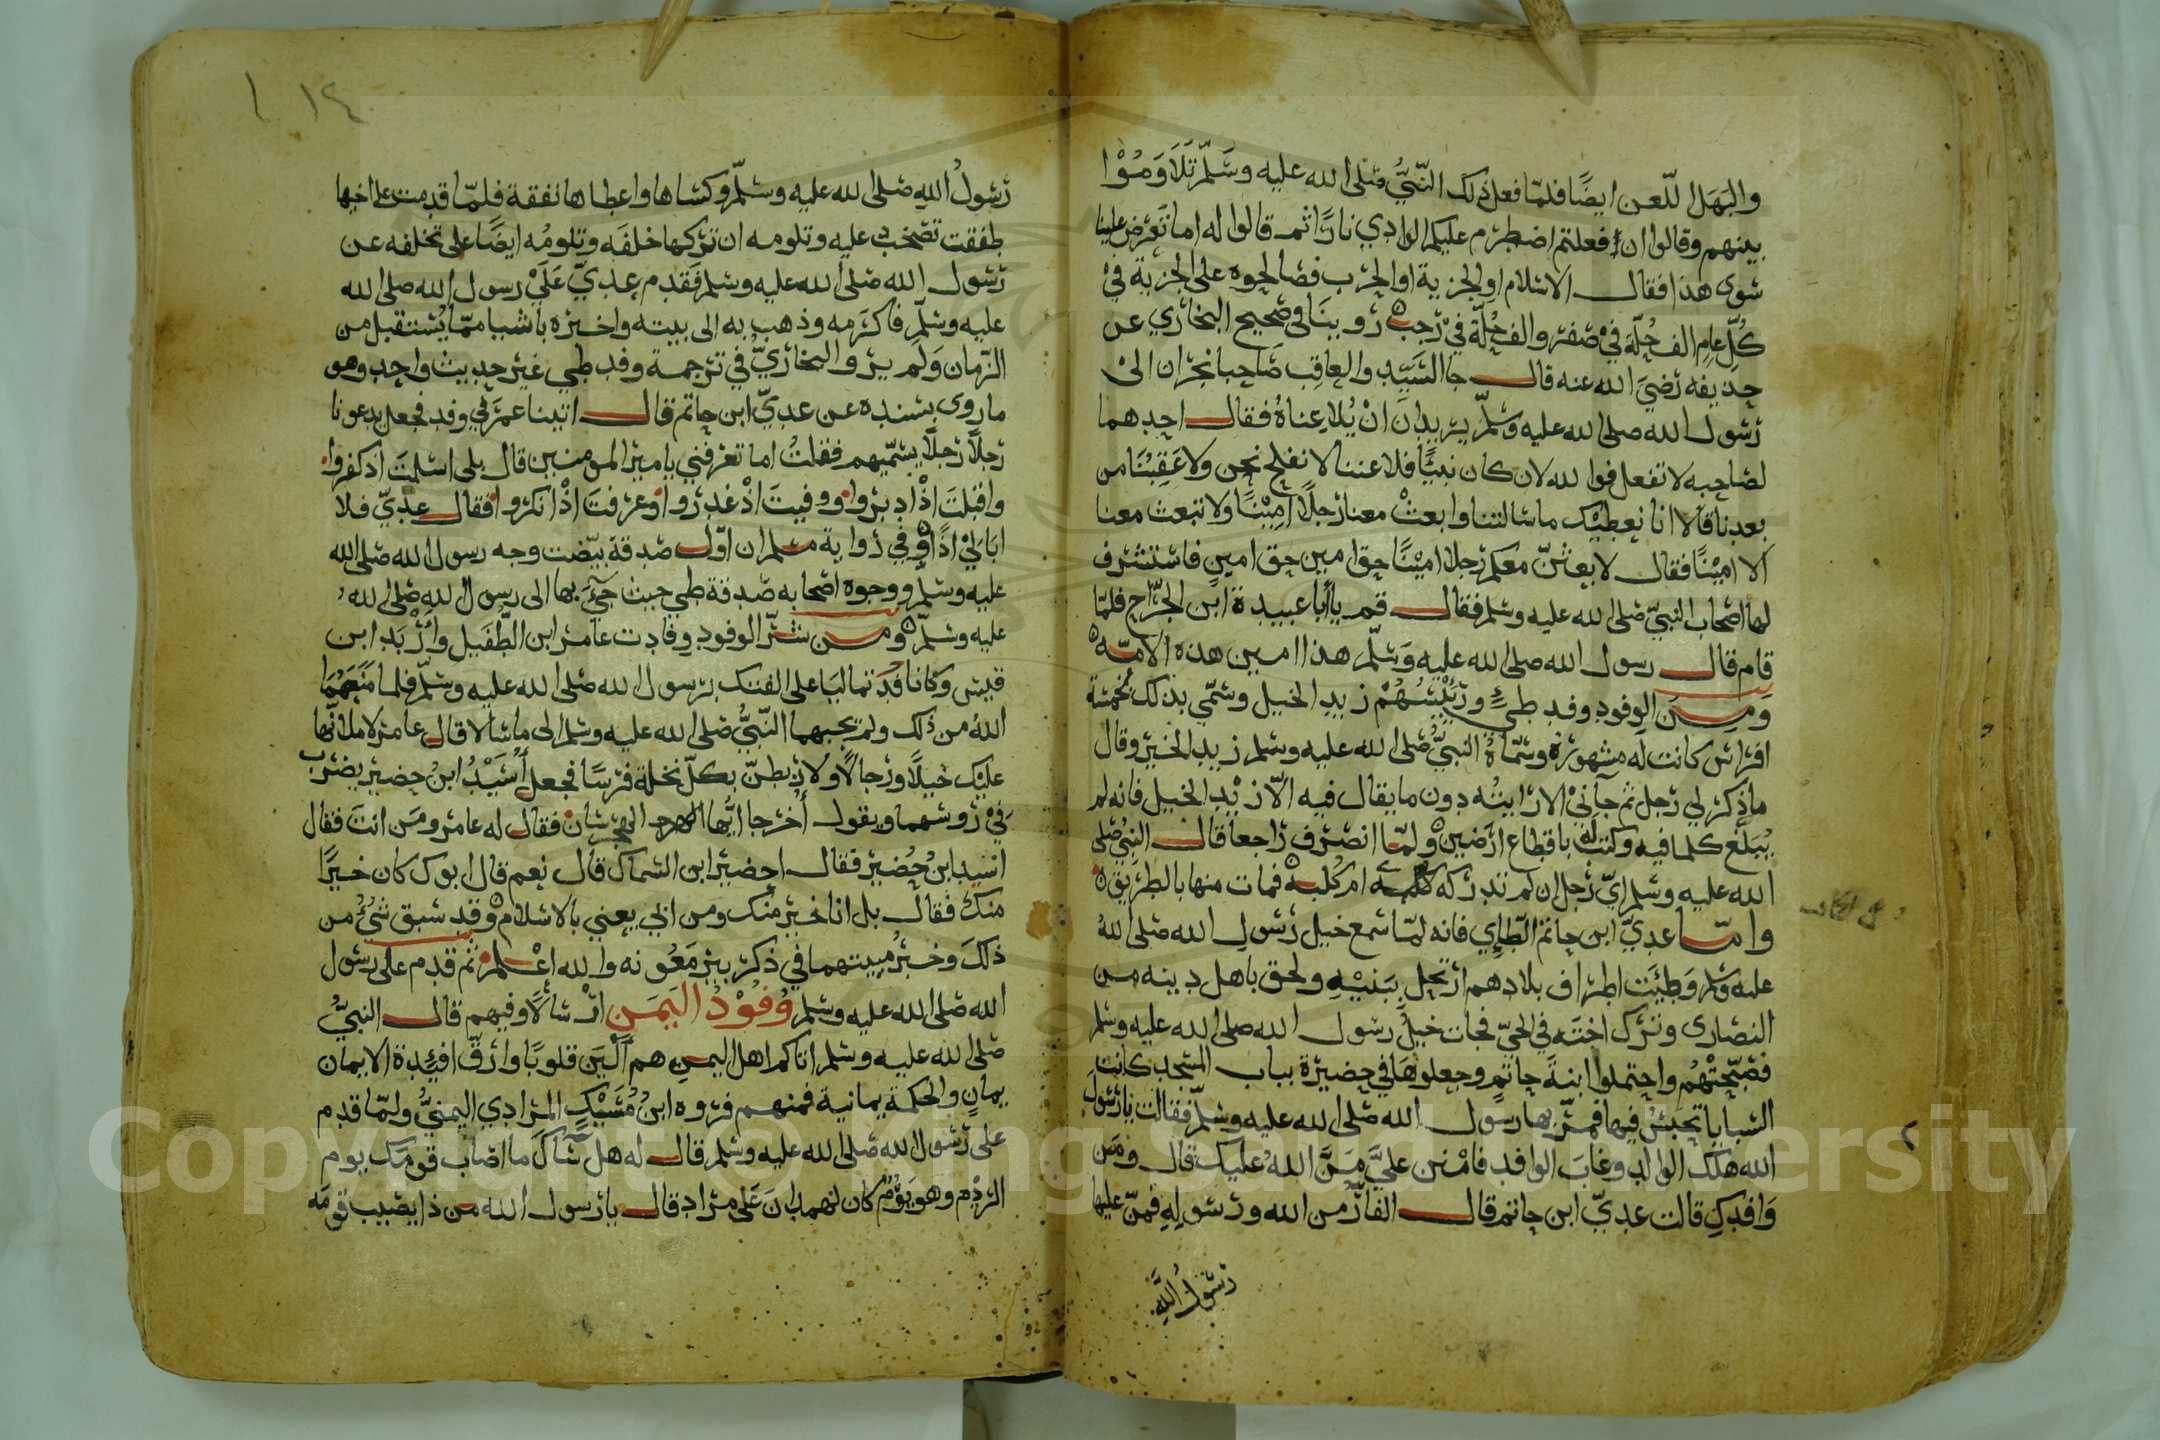 والبهل اللعن ايضا فلما فعل ذلك النبي صلى الله عليه وسلم تلاوموا
بينهم وقالوا ان فعلتم اضطرم عليكم الوادي نارا ثم قالوا له اما تعرض علينا
سوى هذا فقال الاسلام او الجزية او الحرب فصالحوه على الجزية في
كل عام الف حلة في صفر والف حلة في رجب روينا في صحيح البخاري عن
حذيفه رضي الله عنه قال جا السيد والعاقب صاحبا نجران الى
رسول الله صلى الله عليه وسلم يريدان ان يلاعناه فقال احدهما
لصاحبه لا تفعل فوالله لان كان نبيا فلاعننا لا نفلح نحن ولا عقبنا من
بعدنا قالا انا نعطيك ما سالتنا وابعث معنا رجلا امينا ولا تبعث معنا
الا امينا فقال لابعثن معكم رجلا امينا حق امين حق امين فاستشرف
لها اصحاب النبي صلى الله عليه وسلم فقال قم يا أبا عبيدة ابن الجراح فلما
قام قال رسول الله صلى الله عليه وسلم هذا امين هذه الامة
ومن الوفود وفد طيئ ورئيسهم زيد الخيل وسمي بذلك لخمسة
افراس كانت له مشهورة وسماه النبي صلى الله عليه وسلم زيد الخير وقال
ما ذكر لي رجل ثم جآني الا رايته دون ما يقال فيه الا زيد الخيل فانه لم
يبلغ كلما فيه وكتب له باقطاع ارضين ولما انصرف راجعا قال النبي صلى
الله عليه وسلم اي رجل ان لم تدركه ام كلبة فمات منها بالطريق
واما عدي ابن حاتم الطائي فانه لما سمع خيل رسول الله صلى الله
عليه وسلم وطئت اطراف بلادهم ارتحل ببنيه ولحق باهل دينه من
النصارى وترك اخته في الحي فجات خيل رسول الله صلى الله عليه وسلم
فصبحتهم واحتملوا ابنة حاتم وجعلوها في حضيرة بباب المسجد كانت
السبايا تحبس فيها فمر بها رسول الله صلى الله عليه وسلم فقالت يا رسول
الله هلك الوالد وغاب الوافد فامنن علي من الله عليك قال ومن
وافدك قالت عدي ابن حاتم قال الفار من الله ورسوله فمن عليها
رسول الله
١٤
رسول الله صلى الله عليه وسلم وكساها واعطاها نفقة فلما قدمت على اخيها
طفقت تصخب عليه وتلومه ان تركها خلفه وتلومه ايضا على تخلفه عن
رسول الله صلى الله عليه وسلم فقدم عدي على رسول الله صلى الله
عليه وسلم فاكرمه وذهب به الى بيته واخبره باشيا مما يستقبل من
الزمان ولم يرو البخاري في ترجمة وفد طي غير حديث واحد وهو
ما روى بسنده عن عدي ابن حاتم قال اتينا عمر في وفد فجعل يدعونا
رجلا رجلا يسميهم فقلت اما تعرفني يا امير المومنين قال بلى اسلمت اذ كفروا
واقبلت اذ ادبروا ووفيت اذ غدروا وعرفت اذ انكروا فقال عدي فلا
ابالي اذا وفي رواية مسلم ان اول صدقة بيضت وجه رسول الله صلى الله
عليه وسلم ووجوه اصحابه صدقة طي حيث جيء بها الى رسول الله صلى الله
عليه وسلم ومن شر الوفود وفادت عامر ابن الطفيل وأربد ابن
قيس وكانا قد تماليا على الفتك برسول الله صلى الله عليه وسلم فلما منعهما
الله من ذلك ولم يجبهما النبي صلى الله عليه وسلم الى ما سالا قال عامر لاملانها
عليك خيلا ورجالا ولاربطن بكل نخلة فرسا فجعل أسيد ابن حضير يضرب
في رؤسهما ويقول أخرجا ايها الهجرسان فقال له عامر ومن انت فقال
اسيد ابن حضير فقال احضير ابن السماك قال نعم قال ابوك كان خيرا
منك فقال بل انا خير منك ومن ابي يعني بالاسلام وقد سبق شيء من
ذلك وخبر ميتتهما في ذكر بير معونه والله اعلم ثم قدم على رسول
الله صلى الله عليه وسلم وفود اليمن ارسالا وفيهم قال النبي
صلى الله عليه وسلم اتاكم اهل اليمن هم ألين قلوبا وارق افئدة الايمان
يمان والحكمة يمانية فمنهم فروه ابن مسيك المرادي اليمني ولما قدم
على رسول الله صلى الله عليه وسلم قال له هل سآك ما اصاب قومك يوم
الردم وهو يوم كان لهمدان على مراد قال يا رسول الله من ذا يصيب قومه
Copyright © King Saud University